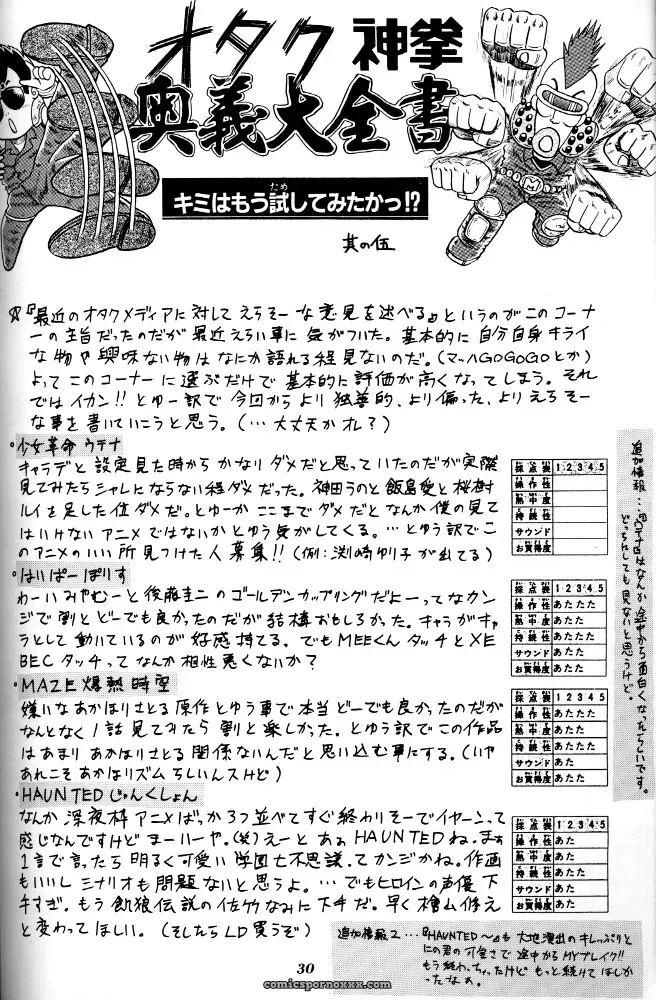 オタク神拳
奥義大全書
キミはもう試してみたかっ!?
ため
其の伍
☆『最近のオタクメディアに対してえらそーな意見を述べる』というのがこのコーナ
ーの主旨だったのだが最近えらい事に気がついた。基本的に自分自身キライ
な物や興味ない物はなにか語れる程見ないのだ。(マッハGOGOGOとか)
よってこのコーナーに選ぶだけで基本的に評価が高くなってしまう。それ
ではイカン!!とゆー訳で今回からより独善的、より偏った、よりえらそー
な事を書いていこうと思う。(…大丈夫かオレ?)
・少女革命ウテナ
キャラデと設定見た時からかなりダメだと思っていたのだが実際
見てみたらシャレにならない程ダメだった。神田うのと飯島愛と桜樹
ルイを足した位ダメだ。とゆーかここまでダメだとなんか僕の見て
はいけないアニメではないかとゆう気がしてくる。…とゆう訳でこ
のアニメのいい所見つけた人募集!!(例:渕崎ゆり子が出てる)
採点表 1 2 3 4 5
操作性
熱中度
持続性
サウンド
お買得度
追加情報…『ウテナ』はなんか途中から面白くなったらしいです。
どっちにしても見ないと思うけど。
・はいぱーぽりす
わーいみやむーと後藤圭二のゴールデンカップリングだよーってなカン
ジで割とどーでも良かったのだが結構おもしろかった。キャラがキャ
ラとして動いているのが好感持てる。でもMEEくんタッチとXE
BECタッチってなんか相性悪くないか?
採点表 1 2 3 4 5
操作性 あたたた
熱中度 あたた
持続性 あたたた
サウンド あたた
お買得度 あたた
・MAZE爆熱時空
嫌いなあかほりさとる原作とゆう事で本当どーでも良かったのだが
なんとなく1話見てみたら割と楽しかった。とゆう訳でこの作品
はあまりあかほりさとる関係ないんだと思い込む事にする。(いや
あれこそあかほりズムらしいんスけど)
採点表 1 2 3 4 5
操作性 あたたた
熱中度 あたた
持続性 あたたたた
サウンド あた
お買得度 あたた
・HAUNTEDじゃんくしょん
なんか深夜枠アニメばっか3つ並べてすぐ終わりそーでイヤーンって
感じなんですけどまーいーや。(笑)えーとあぁHAUNTEDね。まぁ
1言で言ったら明るく可愛い学園七不思議ってカンジかね。作画
もいいしシナリオも問題ないと思うよ。…でもヒロインの声優下
手すぎ。もう飢狼伝説の佐竹なみに下手だ。早く檜山修之
と変わってほしい。(そしたらLD買うぞ)
採点表 1 2 3 4 5
操作性 あた
熱中度 あた
持続性 あた
サウンド あた
お買得度 あた
追加情報2…『HAUNTED〜』も大地演出のキレっぷりと
にの君の可愛さで途中からMYブレイク!!
もう終わっちゃったけどもっと続けてほしか
ったなぁ。
30
comicspornoxxx.com